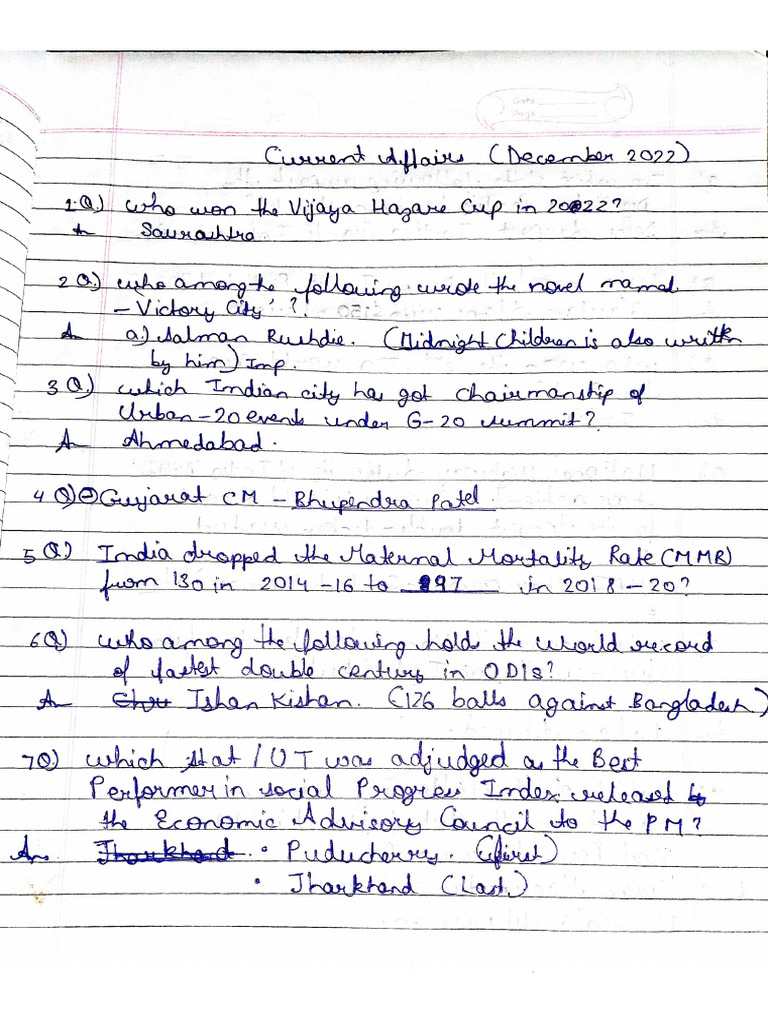 Date
Page
Current Affairs (December 2022)
1Q.) who won the Vijaya Hazare Cup in 2022?
A Saurashtra.
2Q.) who among the following wrote the novel named
– Victory City' ?
A a) Salman Rushdie. (Midnight Children is also written
by him) Imp.
3Q.) which Indian city has got chairmanship of
Urban-20 events under G-20 summit?
A Ahmedabad.
4Q) Gujarat CM – Bhupendra Patel
5Q.) India dropped the Maternal Mortality Rate (MMR)
from 130 in 2014-16 to 97 in 2018-20?
6Q) who among the following holds the world record
of fastest double century in ODIS?
A Ishan Kishan. (126 balls against Bangladesh)
7Q.) which stat / UT was adjudged as the Best
Performer in social Progress Index released by
the Economic Advisory Council to the PM?
Ans. Jharkhand. • Puducherry. (first)
• Jharkhand (Last)